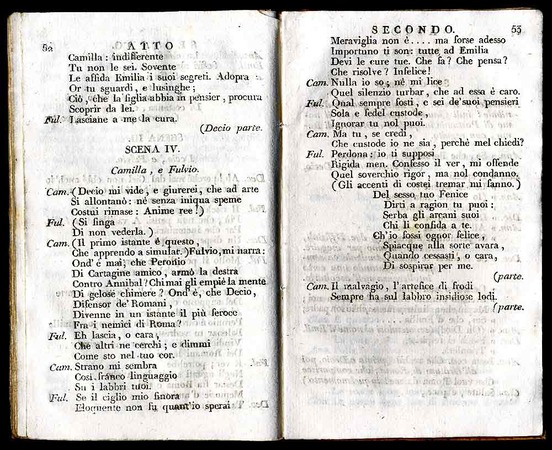 52
ATTO
Camilla: indifferente
Tu non le sei. Sovente
Le affida Emilia i suoi segreti. Adopra
Or tu sguardi, e lusinghe;
Ciò, che la figlia abbia in pensier, procura
Scoprir da lei.
Ful. Lasciane a me la cura.
(Decio parte.
SCENA IV.
Camilla, e Fulvio.
Cam. (Decio mi vide, e giurerei, che ad arte
Si allontanò: né senza iniqua speme
Costui rimase: Anime ree!)
Ful. (Si finga
Di non vederla.)
Cam. (Il primo istante è questo,
Che apprendo a simular.) Fulvio, mi narra:
Ond' è mai, che Perolio
Di Cartagine amico, armò la destra
Contro Annibal? Chi mai gli empiè la mente
Di gelose chimere? Ond' è, che Decio,
Difensor de' Romani,
Divenne in un istante il più feroce
Fra i nemici di Roma?
Ful. Eh lascia, o cara,
Che altri ne cerchi; e dimmi
Come sto nel tuo cor.
Cam. Strano mi sembra
Così franco linguaggio
Su i labbri tuoi.
Ful. Se il ciglio mio finora
Eloquente non fu quant'io sperai
SECONDO. 53
Meraviglia non è.... ma forse adesso
Importuno ti son: tutte ad Emilia
Devi le cure tue. Che fa? Che pensa?
Che risolve? Infelice!
Cam. Nulla io so; né mi lice
Quel silenzio turbar, che ad essa è caro.
Ful. Qual sempre fosti, e sei de' suoi pensieri
Sola e fedel custode,
Ignorar tu nol puoi.
Cam. Ma tu, se credi,
Che custode io ne sia, perchè mel chiedi?
Ful. Perdona: io ti supposi
Rigida men. Confesso il ver, mi offende
Quel soverchio rigor, ma nol condanno.
(Gli accenti di costei tremar mi fanno.)
Del sesso tuo Fenice
Dirti a ragion tu puoi;
Serba gli arcani suoi
Chi li confida a te.
Ch'io fossi ognor felice,
Spiacque alla sorte avara,
Quando cessasti, o cara,
Di sospirar per me.
(parte.
Cam. Il malvagio, l'artefice di frodi
Sempre ha sul labbro insidiose lodi.
(parte.